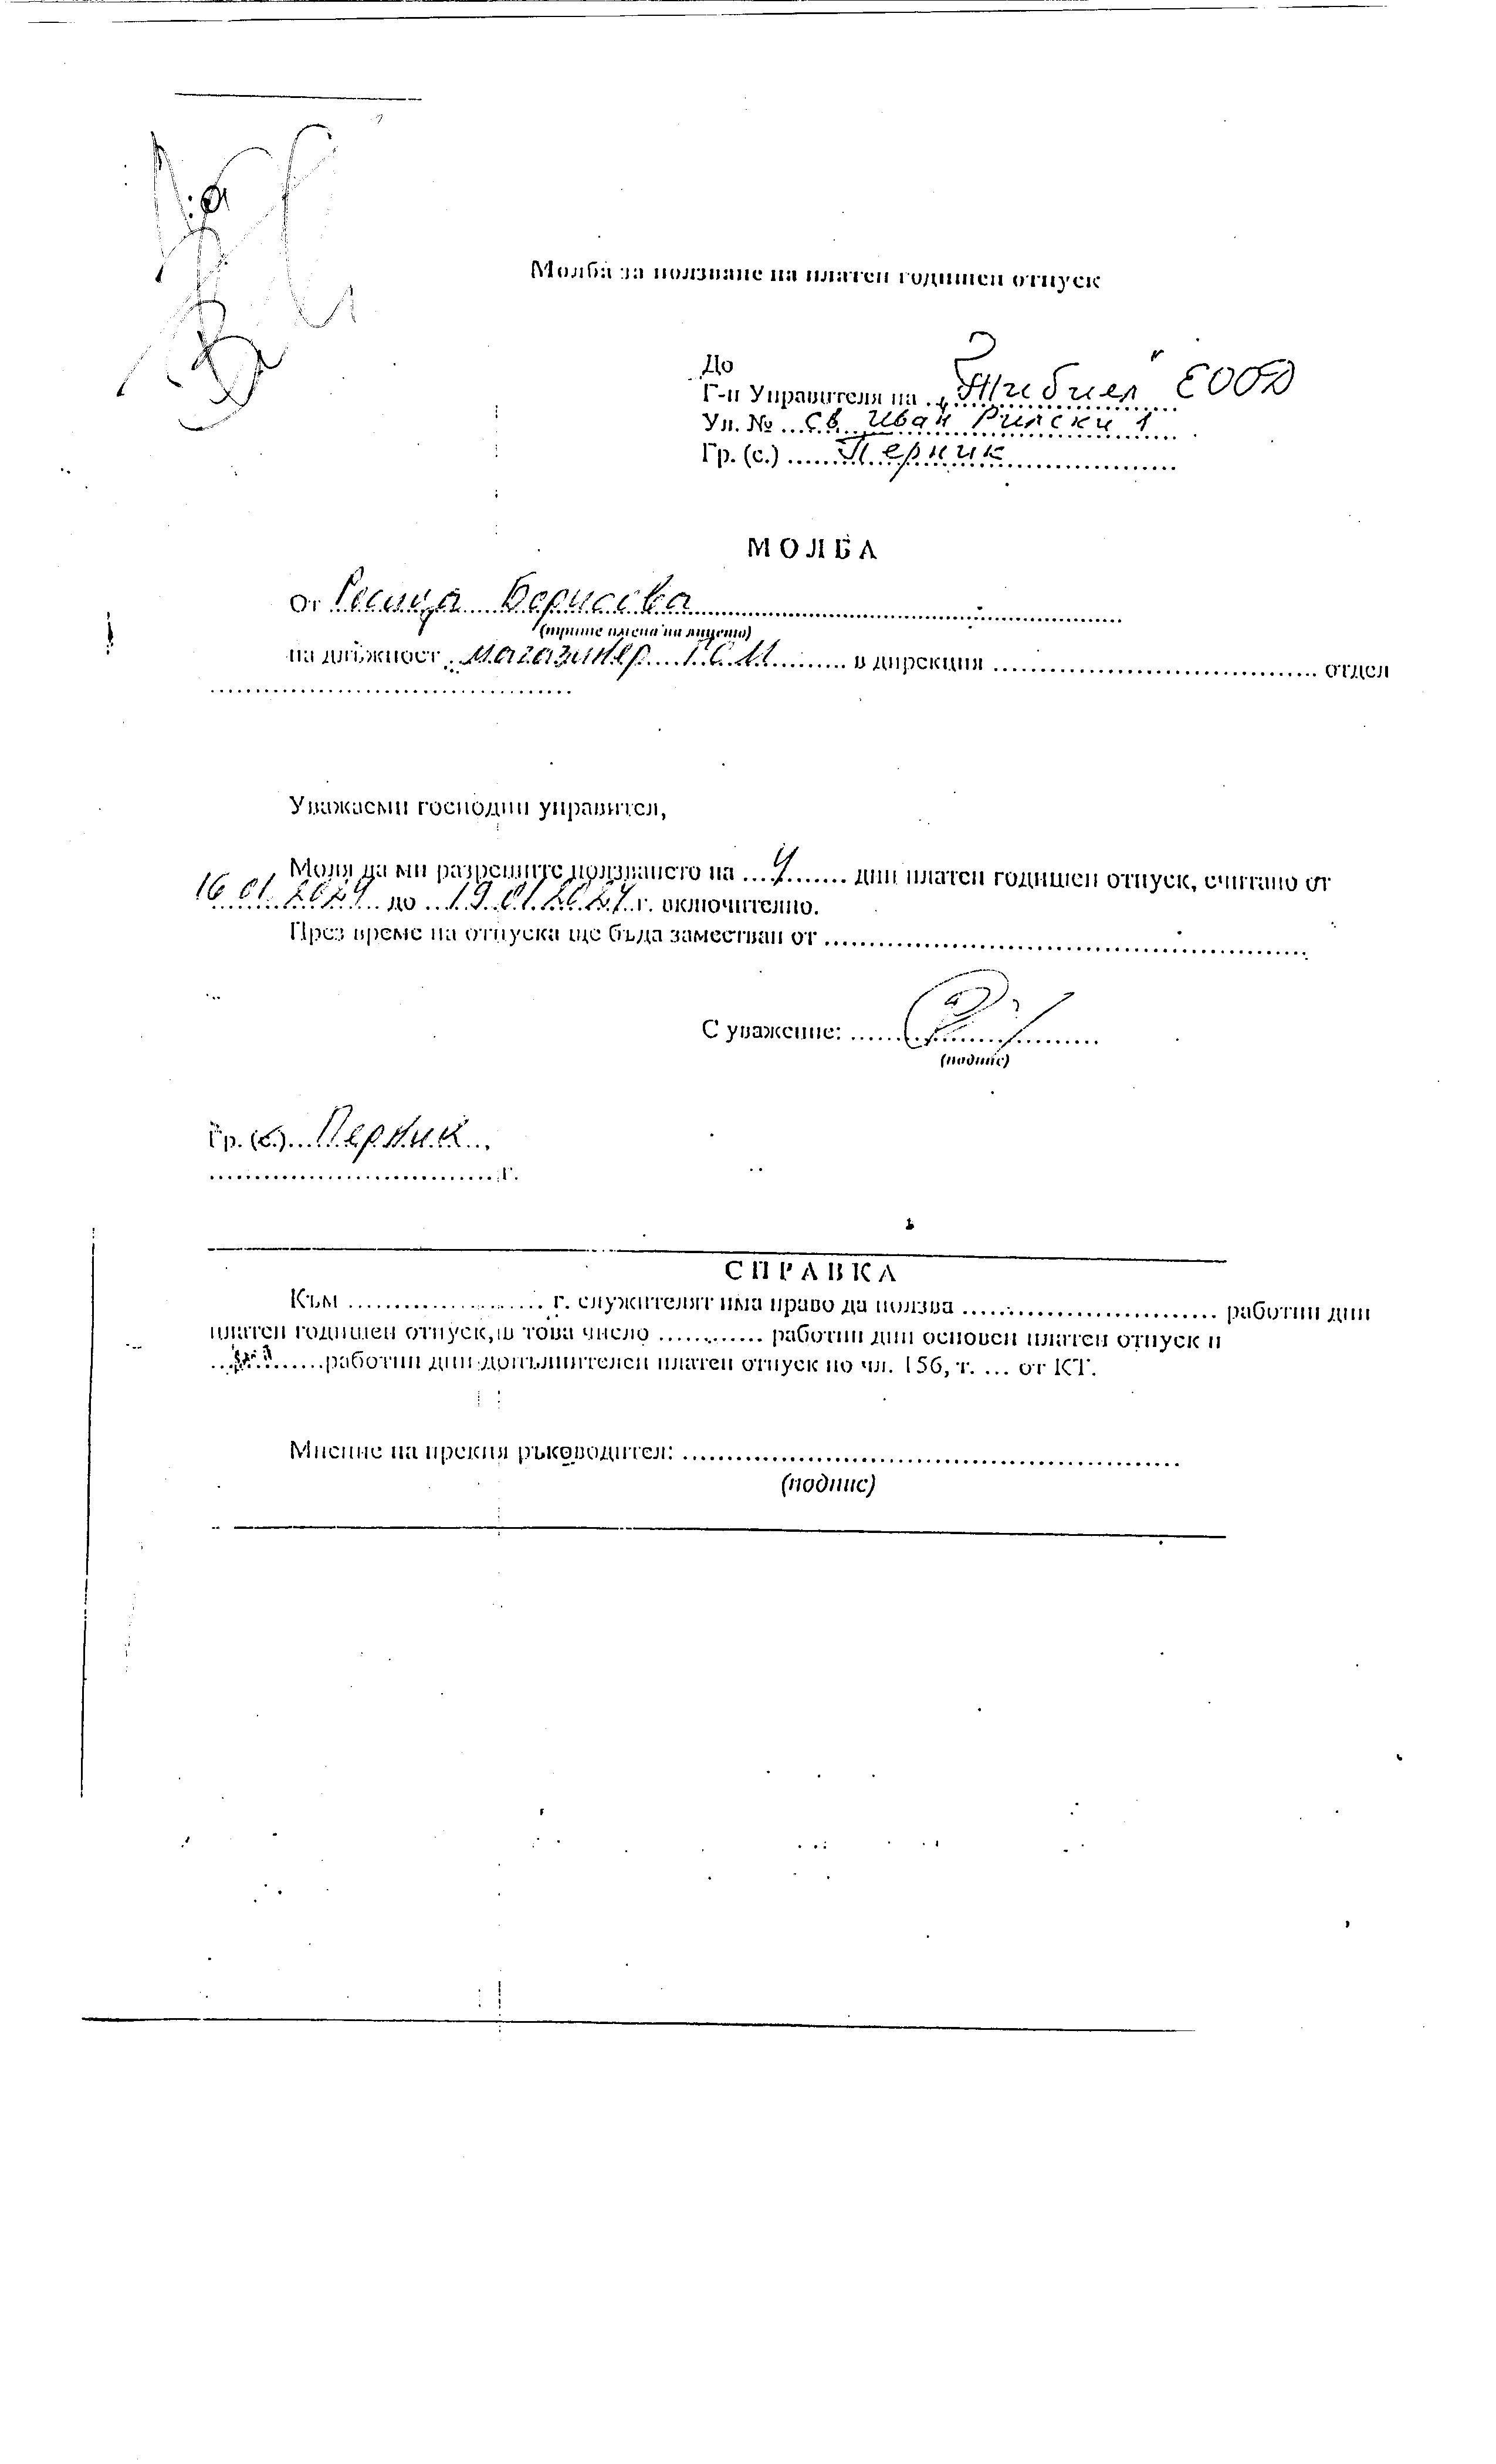 Молба за ползване на платен годишен отпуск
До
Г-н Управителя на „Тибиел" ЕООД
Ул. № Св. Иван Рилски 1
Гр. (с.) Перник
МОЛБА
От Росица Борисова
(трите имена на лицето)
на длъжност магазинер ГСМ в дирекция отдел
Уважаеми господин управител,
Моля да ми разрешите ползването на 4 дни платен годишен отпуск, считано от
16.01.2024 до 19.01.2024 г. включително.
През време на отпуска ще бъда заместван от
С уважение:
(подпис)
Гр. (с.) Перник
г.
СПРАВКА
Към г. служителят има право да ползва работни дни
платен годишен отпуск, в това число работни дни основен платен отпуск и
работни дни допълнителен платен отпуск по чл. 156, т. ... от КТ.
Мнение на прекия ръководител:
(подпис)